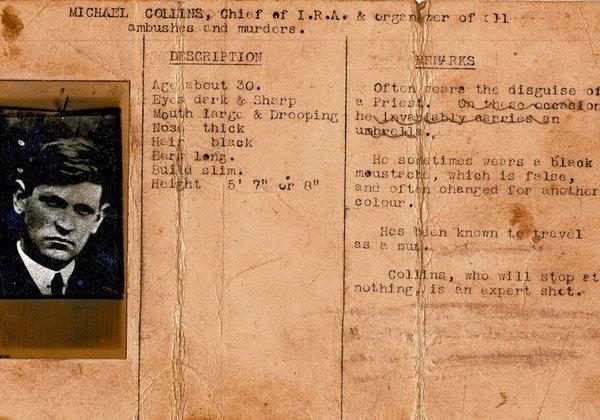 MICHAEL COLLINS, Chief of I.R.A. & organizer of all
ambushes and murders.
DESCRIPTION
Age about 30.
Eyes dark & Sharp
Mouth large & Drooping
Nose thick
Hair black
Ears long.
Build slim.
Height 5' 7" or 8"
REMARKS
Often wears the disguise of
a Priest. On these occasion
he invariably carries an
umbrella.
He sometimes wears a black
moustache, which is false,
and often changed for another
colour.
Has been known to travel
as a nun.
Collins, who will stop at
nothing, is an expert shot.